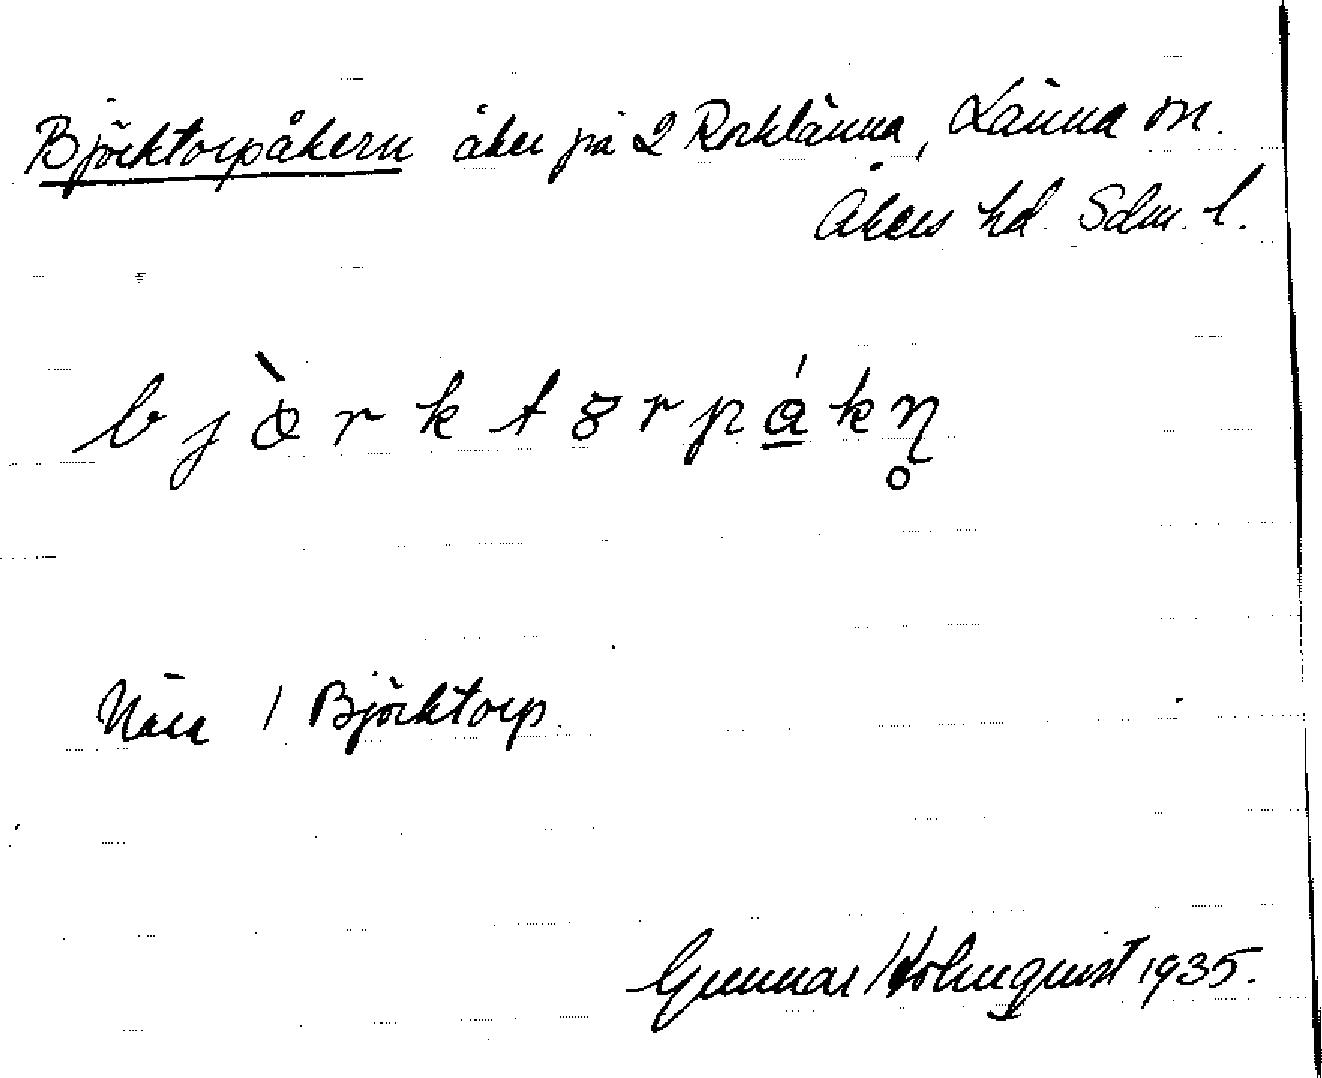 Björktorpåkern åker på 2 Rorklänna, Länna sn.
Åkers hd. Sdm. l.
Nära 1 Björktorp.
Gunnar Holmquist 1935.